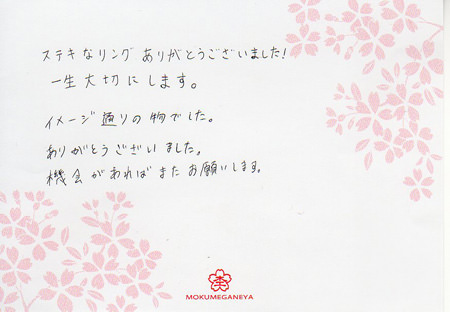 ステキなリングありがとうございました!
一生大切にします。
イメージ通りの物でした。
ありがとうございました。
機会があればまたお願いします。
杢
MOKUMEGANEYA